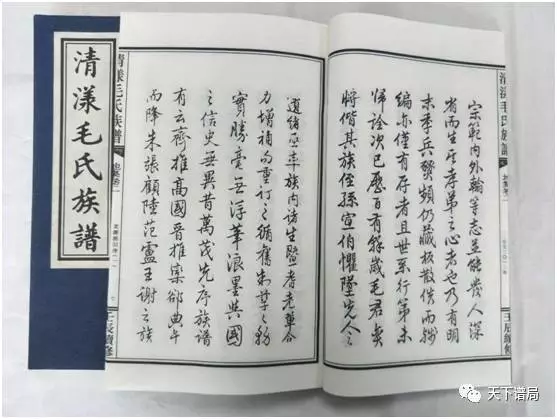 清漾毛氏族譜
清漾毛氏族譜
壬辰續修
宗範内外翰等志並能發人深
省而生其孝弟之心者也乃有明
末季兵燹頻仍藏板散佚而殘
編亦僅有存者且世系行第未
歸詮次已歷百有餘歲毛君
將偕其族侄孫宣伯懼墜先人之
遺緒率族内生暨耆老
力增補而重訂之循舊制之務
實勝毫無浮華浪墨與國
之信史無異昔萬茂先序族譜
有云齊推高國晉推欒郤典午
而降朱張顧陸范盧王謝之族
清漾毛氏族譜
七
壬辰續修
天下谱局